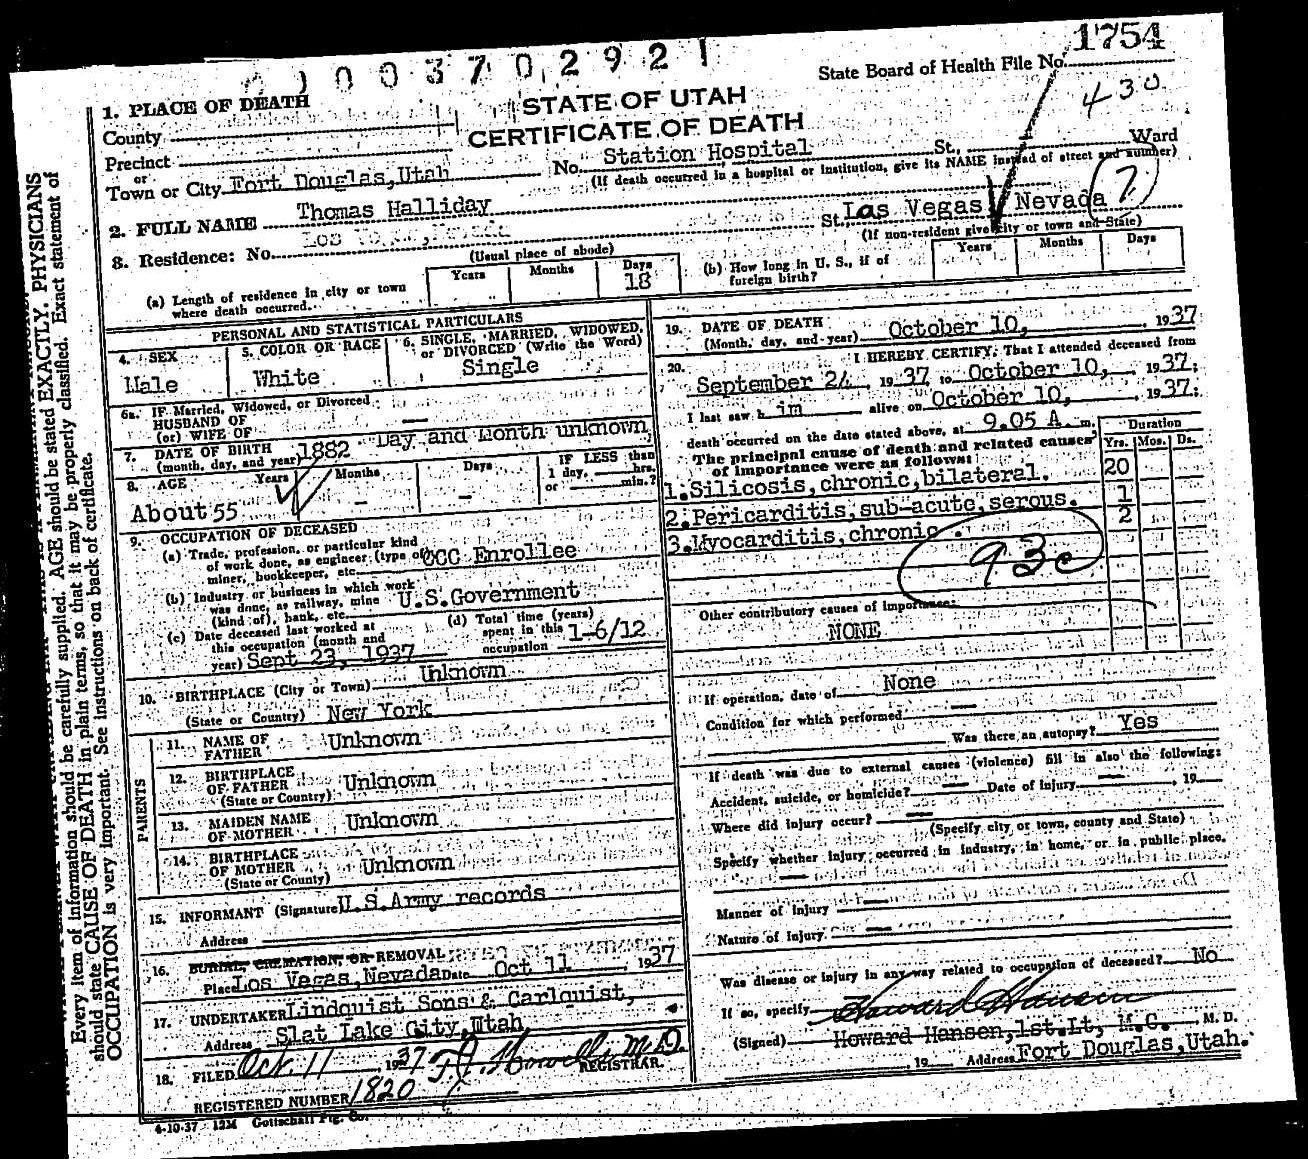 1003702921
1754
State Board of Health File No.
430
STATE OF UTAH
CERTIFICATE OF DEATH
1. PLACE OF DEATH
County
Precinct
or
Town or City Fort Douglas,Utah
No. Station Hospital St., Ward
(If death occurred in a hospital or institution, give its NAME instead of street and number)
2. FULL NAME Thomas Halliday
8. Residence: No. St. Las Vegas Nevada (7)
(Usual place of abode)
(If non-resident give city or town and State)
(a) Length of residence in city or town
where death occurred.
Years Months Days
18
(b) How long in U. S., if of
foreign birth?
Years Months Days
PERSONAL AND STATISTICAL PARTICULARS
4. SEX
Male
5. COLOR OR RACE
White
6. SINGLE, MARRIED, WIDOWED,
or DIVORCED (Write the Word)
Single
6a. IF Married, Widowed, or Divorced
HUSBAND OF
(or) WIFE OF —
7. DATE OF BIRTH
(month, day, and year) 1882 Day and Month unknown
8. AGE Years Months Days
About 55 - -
IF LESS than
1 day, hrs.
or min.?
9. OCCUPATION OF DECEASED
(a) Trade, profession, or particular kind
of work done, as engineer (type of)
miner, bookkeeper, etc. CCC Enrollee
(b) Industry or business in which work
was done, as railway, mine
(kind of), bank, etc. U.S.Government
(c) Date deceased last worked at
this occupation (month and
year) Sept 23, 1937
(d) Total time (years)
spent in this
occupation 1-6/12
10. BIRTHPLACE (City or Town) Unknown
(State or Country) New York
PARENTS
11. NAME OF
FATHER Unknown
12. BIRTHPLACE
OF FATHER
(State or Country) Unknown
13. MAIDEN NAME
OF MOTHER Unknown
14. BIRTHPLACE
OF MOTHER
(State or County) Unknown
15. INFORMANT (Signature U.S.Army records
Address
16. BURIAL, CREMATION, OR REMOVAL
Place Los Vegas,Nevada Date Oct 11, 1937
17. UNDERTAKER Lindquist Sons & Carlquist,
Address Slat Lake City,Utah
18. FILED Oct 11 1937
REGISTRAR.
REGISTERED NUMBER 1820
4-10-37 12M Gottschall Ptg. Co.
19. DATE OF DEATH
(Month, day, and year) October 10, 1937
20. I HEREBY CERTIFY, That I attended deceased from
September 24 1937 to October 10, 1937;
I last saw him alive on October 10, 1937;
death occurred on the date stated above, at 9.05 A m.
The principal cause of death and related causes
of importance were as follows:
Duration
Yrs. Mos. Ds.
1.Silicosis,chronic,bilateral. 20
2.Pericarditis,sub-acute,serous. 1
3.Myocarditis,chronic. 2
93c
Other contributory causes of importance:
NONE
If operation, date of None
Condition for which performed —
Was there an autopsy? Yes
If death was due to external causes (violence) fill in also the following:
Accident, suicide, or homicide? — Date of injury — 19
Where did injury occur? —
(Specify city or town, county and State)
Specify whether injury occurred in industry, in home, or in public place.
—
Manner of injury —
Nature of injury —
Was disease or injury in any way related to occupation of deceased? No
If so, specify Howard Hansen
(Signed) Howard Hansen,1st.Lt, M.C. M. D.
19 Address Fort Douglas,Utah.
Every item of information should be carefully supplied. AGE should be stated EXACTLY. PHYSICIANS
should state CAUSE OF DEATH in plain terms, so that it may be properly classified. Exact statement of
OCCUPATION is very important. See instructions on back of certificate.